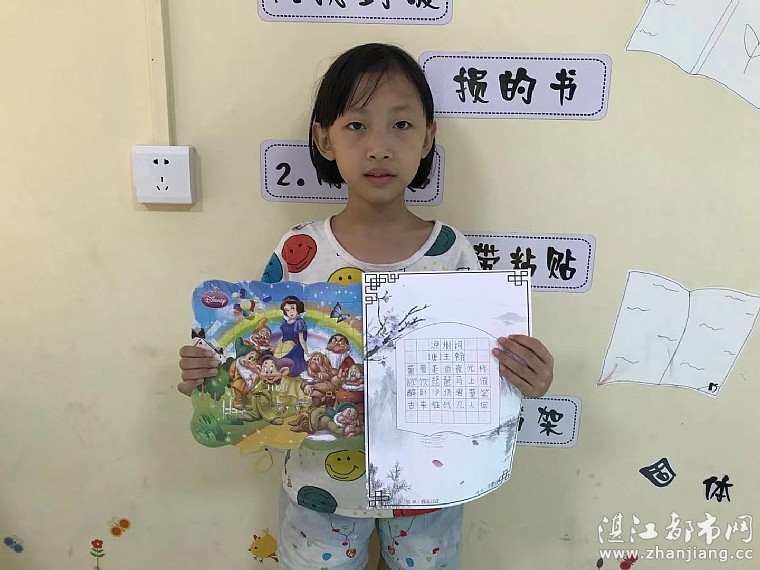 损的书
2.
带粘贴
架
体
Disney
凉州词
唐王翰
葡萄美酒夜光杯
欲饮琵琶马上催
醉卧沙场君莫笑
古来征战几人回
湛江都市网
www.zhanjiang.cc